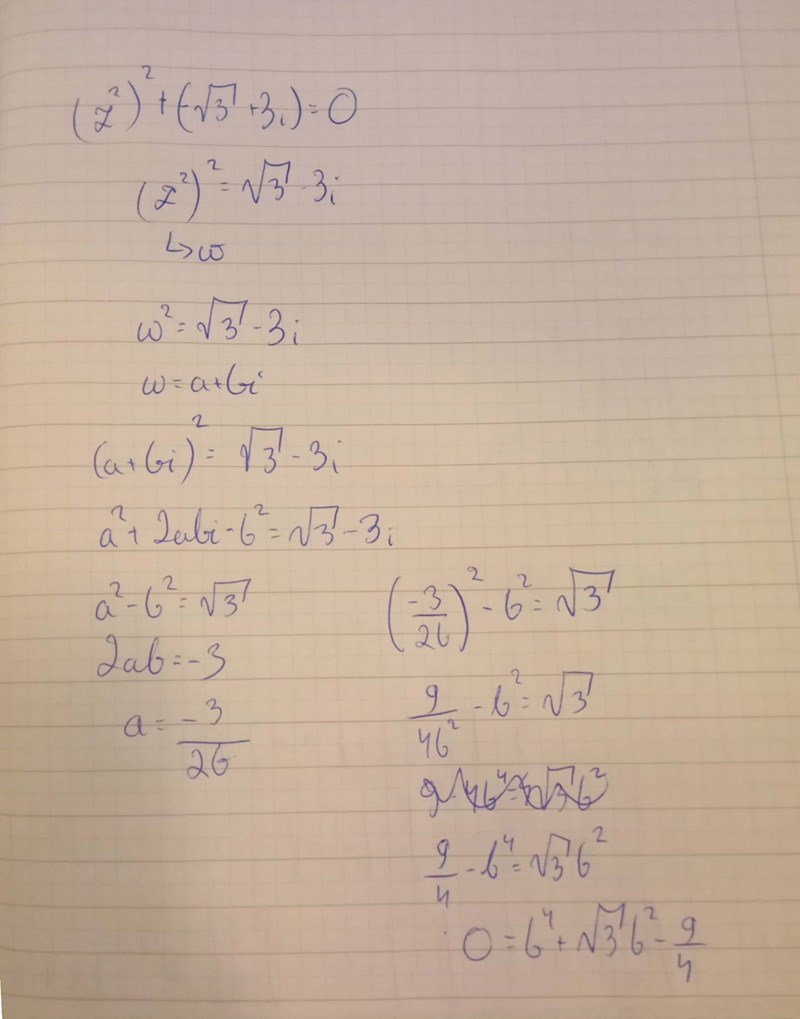 (z²)² + (-√3 + 3i) = 0
(z²)² = √3 - 3i
↳ w
w² = √3 - 3i
w = a + bi
(a + bi)² = √3 - 3i
a² + 2abi - b² = √3 - 3i
a² - b² = √3
2ab = -3
a = -3/2b
(-3/2b)² - b² = √3
9/4b² - b² = √3
9/4 - b⁴ = √3 b²
0 = b⁴ + √3 b² - 9/4